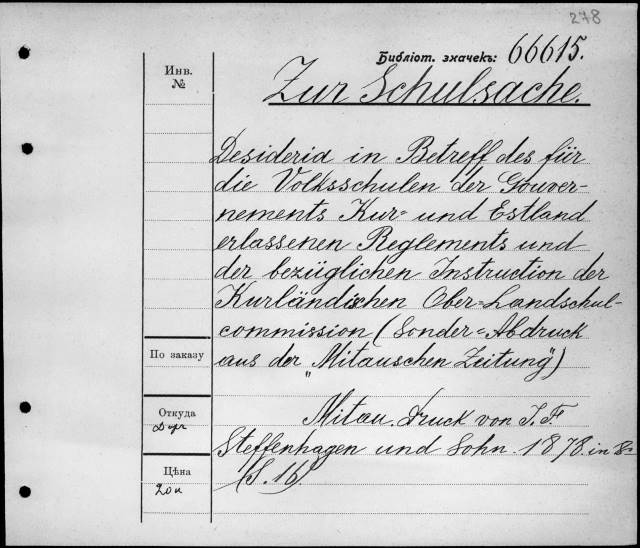 278
Библіот. значекъ: 66615.
Инв.
№
Zur Schulsache.
Desideria in Betreff des für
die Volksschulen der Gouver-
nements Kur= und Estland
erlassenen Reglements und
der bezüglichen Instruction der
Kurländischen Ober=Landschul-
commission (Sonder=Abdruck
aus der „Mitauschen Zeitung")
По заказу
Mitau. Druck von J. F.
Откуда
Steffenhagen und Sohn. 1878. in 8º
Цѣна
(S. 16)